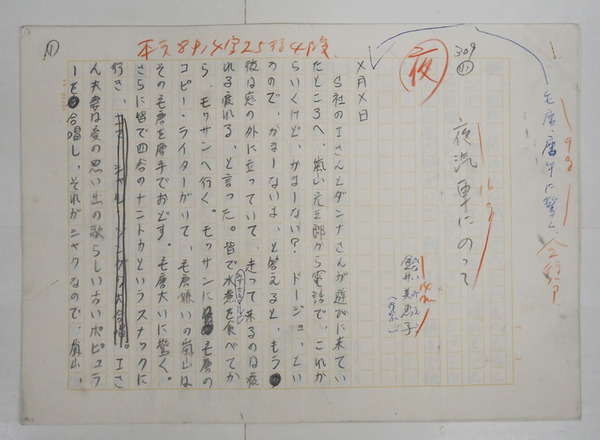 (1)
本文8ポ14字25行4段
309
(11)
夜
毛唐、唐手に驚く
夜汽車にのって
金井美恵子
(作家)
×月×日
S社のIさんとダンナさんが遊びに来てい
たところへ、嵐山光三郎から電話で、これか
らいくけど、かまーない? ドージョ、とい
うので、かまーないよ、と答えると、もう
彼は窓の外に立っていて、走って来るのは疲
れる疲れる、と言った。皆で水煮を食べてか
ら、モッサンへ行く。モッサンに毛唐の
コピー・ライターがいて、毛唐嫌いの嵐山は
その毛唐を唐手でおどす。毛唐大いに驚く。
さらに皆で四谷のナントカというスナックに
行き、Iさ
ん夫妻は愛の思い出の歌らしい古いポピュラ
ーを合唱し、それがシャクなので、嵐山、